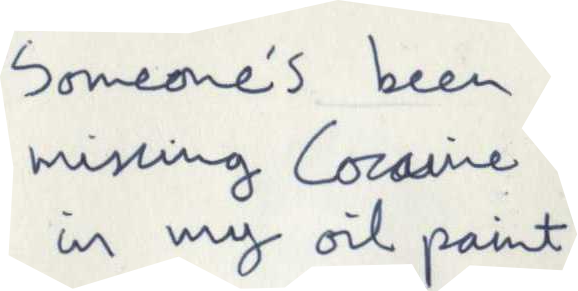 Someone's been
missing Cocaine
in my oil paint